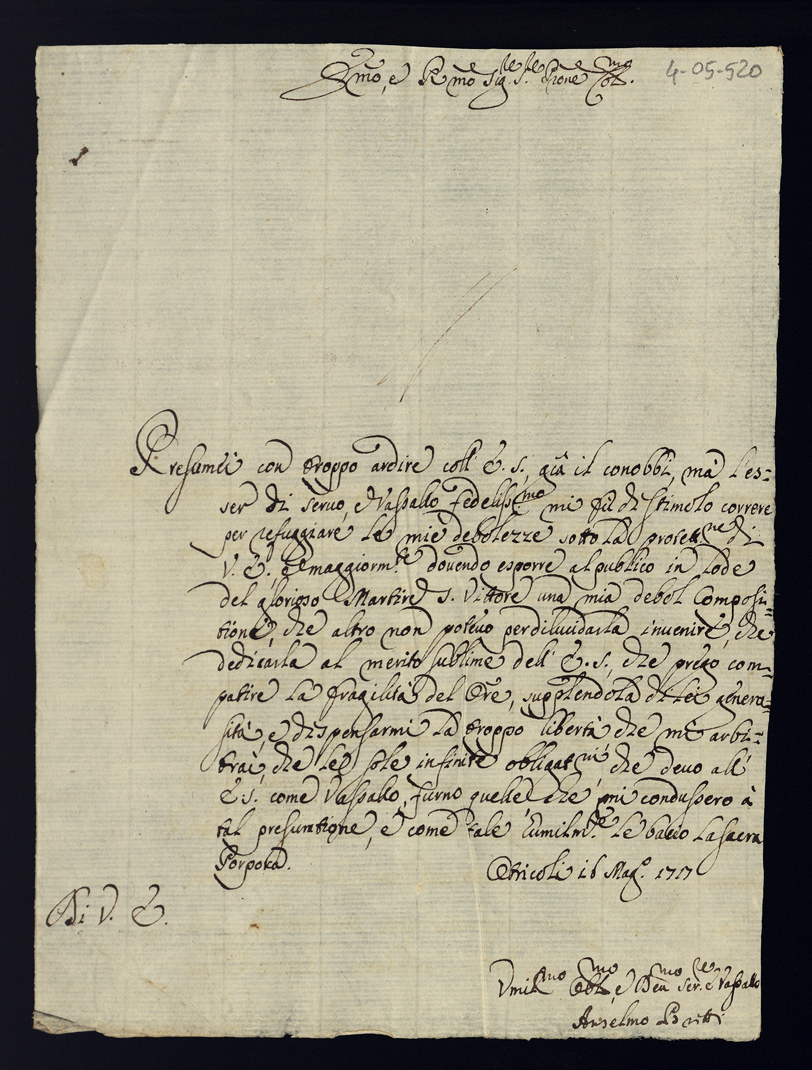 Emo, e Rmo Sigre Sre Prone Colmo
4-05-520
Presumei con troppo ardire coll'E. S., già il conobbi, mà l'es=
ser di servo, e Vassallo fedelissmo mi fù di stimolo correre
per refuggiare le mie debolezze sotto la protettne di
V. E., e maggiormte dovendo esporre al publico in lode
del glorioso Martire S. Vittore una mia debol Composi=
tione, che altro non potevo per dilucidarla invenire, che
dedicarla al merito sublime dell'E. S., che prego com=
patire la fragilità del Ore, supplendola di lei genero=
sità, e dispensarmi la troppo libertà che mi arbi=
trai, che le sole infinite obligatni che devo all'
E. S. come Vassallo, furno quelle che mi condussero à
tal presuntione, e come tale humilmte le bacio la sacra
Porpora.
Otricoli 16 Mago. 1717
Di V. E.
Vmilmo Oblmo, e Deumo ser.re e Vassallo
Anselmo Britti